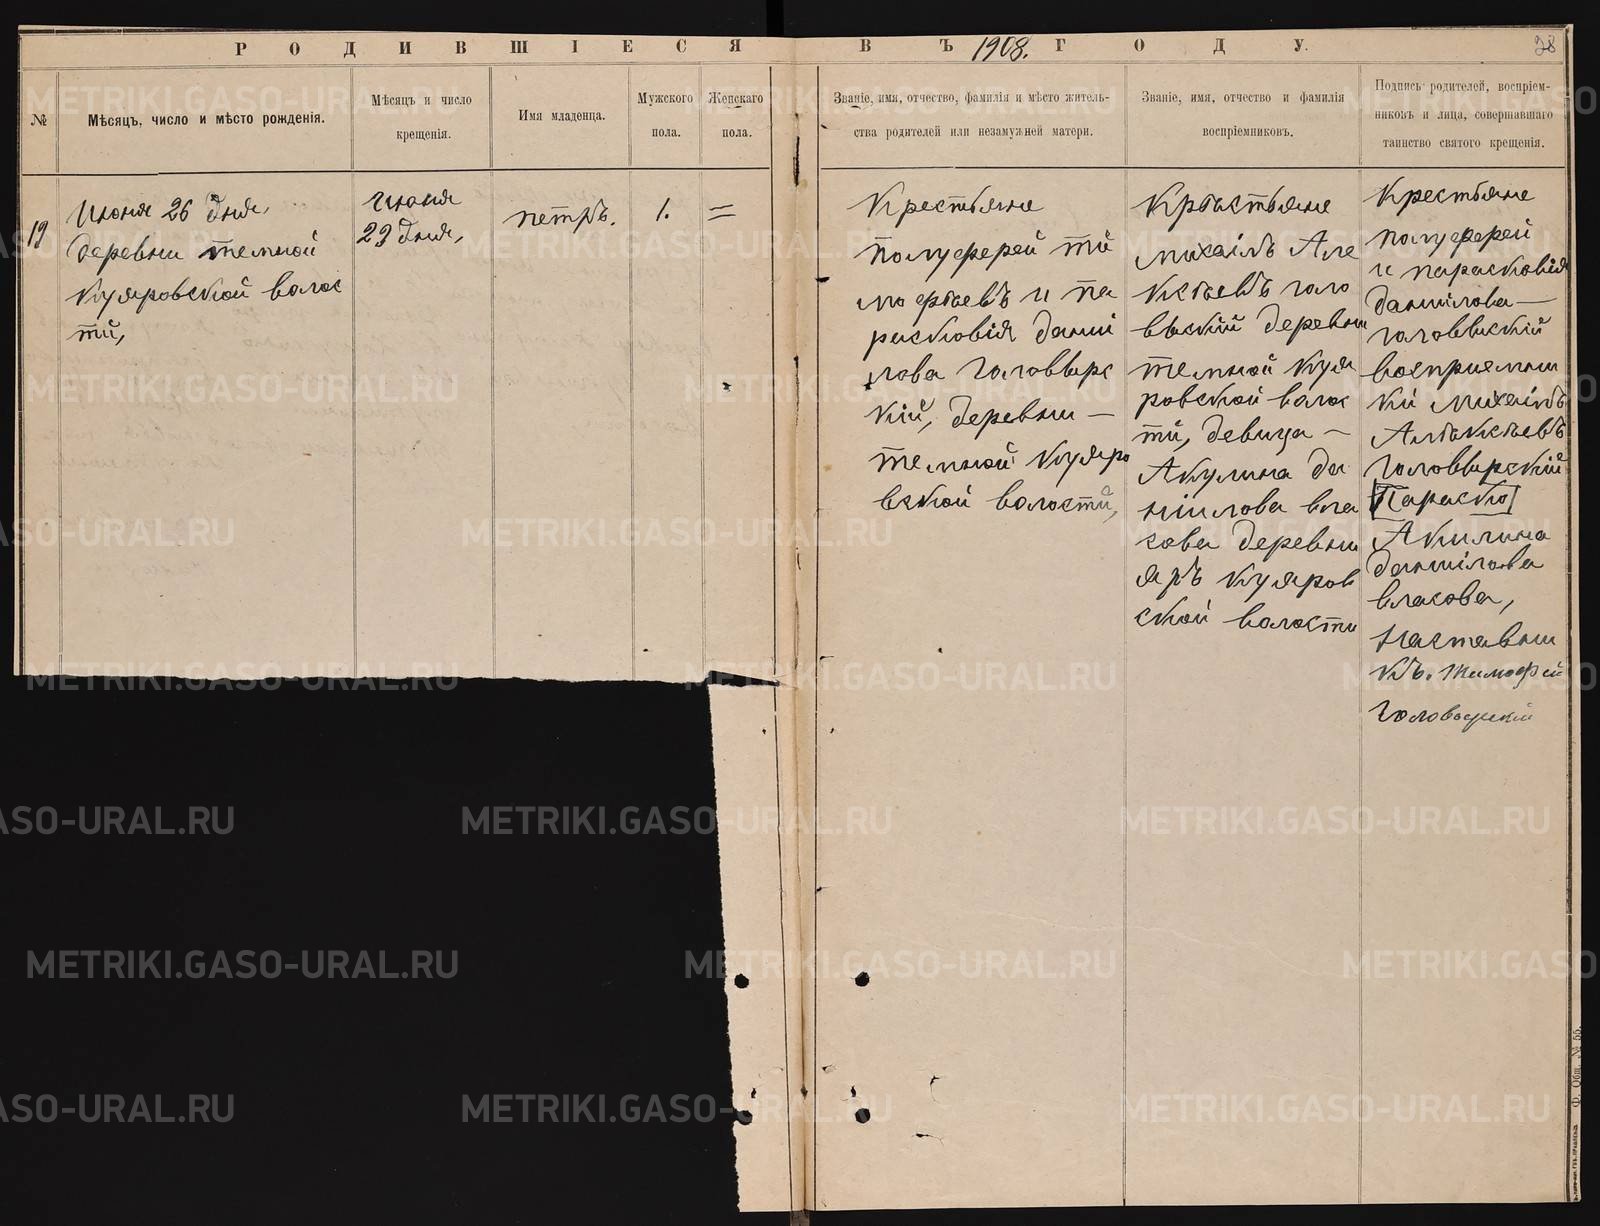 РОДИВШІЕСЯ ВЪ 1908. ГОДУ.
28
№
Мѣсяцъ, число и мѣсто рожденія.
Мѣсяцъ и число
крещенія.
Имя младенца.
Мужского
пола.
Женскаго
пола.
Званіе, имя, отчество, фамилія и мѣсто житель-
ства родителей или незамужней матери.
Званіе, имя, отчество и фамилія
воспріемниковъ.
Подпись родителей, воспріем-
никовъ и лица, совершавшаго
таинство святого крещенія.
19
Июня 26 дня,
деревни темной
куяровской волос
тй,
Июня
29 дня,
петръ.
1.
=
Крестьяне
полуферей ти
мофѣевъ и па
расковія дани
лова головырс
кій, деревни —
темной куяро
вской волости,
Крѣстьяне
михаілъ Але
ксѣевъ голо
вскій деревни
темной куя
ровской волос
тй, девица —
Акулина да
ніилова вла
сова деревни
яръ куяров
ской волости
Крестьяне
полуферей
и парасковія
данилова —
восприемни
ки михаілъ
Алѣксѣевъ
головырскій
[Параско]
Акилина
данилова
власова,
Наставни
къ. Тимофей
Ф. Общ. № 55.
METRIKI.GASO-URAL.RU